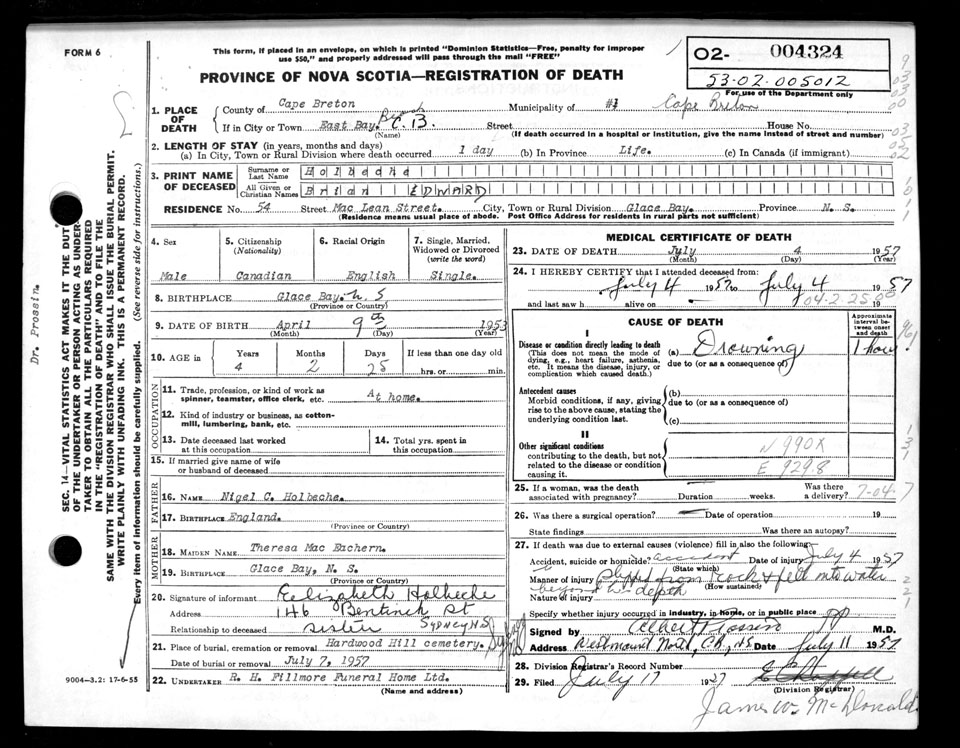 FORM 6
This form, if placed in an envelope, on which is printed "Dominion Statistics—Free, penalty for improper
use $50," and properly addressed will pass through the mail "FREE"
PROVINCE OF NOVA SCOTIA—REGISTRATION OF DEATH
02- 004324
53-02-005012
For use of the Department only
1. PLACE OF DEATH
County of Cape Breton Municipality of #1 Cape Breton
If in City or Town East Bay. C.B. Street House No.
(Name) (If death occurred in a hospital or institution, give the name instead of street and number)
2. LENGTH OF STAY (in years, months and days)
(a) In City, Town or Rural Division where death occurred 1 day (b) In Province Life. (c) In Canada (if immigrant)
3. PRINT NAME OF DECEASED
Surname or Last Name Holbeche
All Given or Christian Names Brian EDWARD
RESIDENCE No. 54 Street Mac Lean Street. City, Town or Rural Division Glace Bay. Province N. S.
(Residence means usual place of abode. Post Office Address for residents in rural parts not sufficient)
4. Sex
Male
5. Citizenship (Nationality)
Canadian
6. Racial Origin
English
7. Single, Married, Widowed or Divorced (write the word)
Single.
8. BIRTHPLACE Glace Bay. N. S
(Province or Country)
9. DATE OF BIRTH April 9th 1953
(Month) (Day) (Year)
10. AGE in Years Months Days If less than one day old
4 2 25 hrs. or min.
OCCUPATION
11. Trade, profession, or kind of work as spinner, teamster, office clerk, etc. At home.
12. Kind of industry or business, as cotton-mill, lumbering, bank, etc.
13. Date deceased last worked at this occupation
14. Total yrs. spent in this occupation
15. If married give name of wife or husband of deceased
FATHER
16. NAME Nigel C. Holbeche.
17. BIRTHPLACE England.
(Province or Country)
MOTHER
18. MAIDEN NAME Theresa Mac Eachern.
19. BIRTHPLACE Glace Bay, N. S.
(Province or Country)
20. Signature of informant Elizabeth Holbeche
Address 146 Bentinck St
Sydney N.S
Relationship to deceased sister
21. Place of burial, cremation or removal Hardwood Hill cemetery.
Date of burial or removal July 7, 1957
22. UNDERTAKER R. H. Fillmore Funeral Home Ltd.
(Name and address)
MEDICAL CERTIFICATE OF DEATH
23. DATE OF DEATH July 4 1957
(Month) (Day) (Year)
24. I HEREBY CERTIFY that I attended deceased from:
July 4 1957 to July 4 1957
and last saw h alive on 19
04-2-25-00
CAUSE OF DEATH
Approximate interval between onset and death
I
Disease or condition directly leading to death
(This does not mean the mode of dying, e.g., heart failure, asthenia, etc. It means the disease, injury, or complication which caused death.)
(a) Drowning 1 hour
due to (or as a consequence of)
Antecedent causes
Morbid conditions, if any, giving rise to the above cause, stating the underlying condition last.
(b)
due to (or as a consequence of)
(c)
II
Other significant conditions
contributing to the death, but not related to the disease or condition causing it.
N 990X
E 929.8
25. If a woman, was the death associated with pregnancy? Duration weeks. Was there a delivery?
7-04-7
26. Was there a surgical operation? Date of operation 19
State findings Was there an autopsy?
27. If death was due to external causes (violence) fill in also the following:
Accident, suicide or homicide? accident Date of injury July 4 1957
(State which)
Manner of injury Slipped from rock & fell into water
(How sustained)
Nature of injury beyond his depth
Specify whether injury occurred in industry, in home, or in public place PP
Signed by M.D.
Address Westmount North, C.B., N.S. Date July 11 1957
28. Division Registrar's Record Number
29. Filed July 17 1957
(Division Registrar)
James W. McDonald
9004-3.2: 17-6-55
Dr. Prossin.
SEC. 14—VITAL STATISTICS ACT MAKES IT THE DUTY
OF THE UNDERTAKER OR PERSON ACTING AS UNDER-
TAKER TO OBTAIN ALL THE PARTICULARS REQUIRED
IN THE "REGISTRATION OF DEATH" AND TO FILE THE
SAME WITH THE DIVISION REGISTRAR WHO SHALL ISSUE THE BURIAL PERMIT.
WRITE PLAINLY WITH UNFADING INK. THIS IS A PERMANENT RECORD.
Every item of information should be carefully supplied. (See reverse side for instructions.)